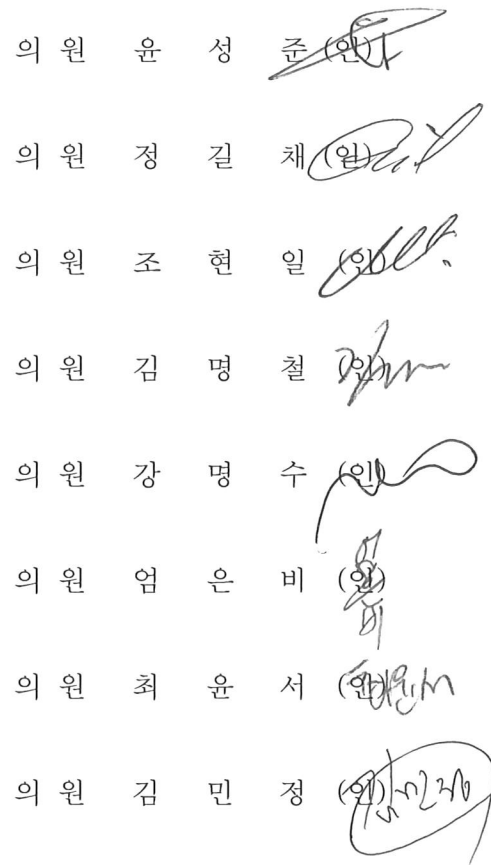 의 원 윤 성 준 (인)
의 원 정 길 채 (인)
의 원 조 현 일 (인)
의 원 김 명 철 (인)
의 원 강 명 수 (인)
의 원 엄 은 비 (인)
의 원 최 윤 서 (인)
의 원 김 민 정 (인)